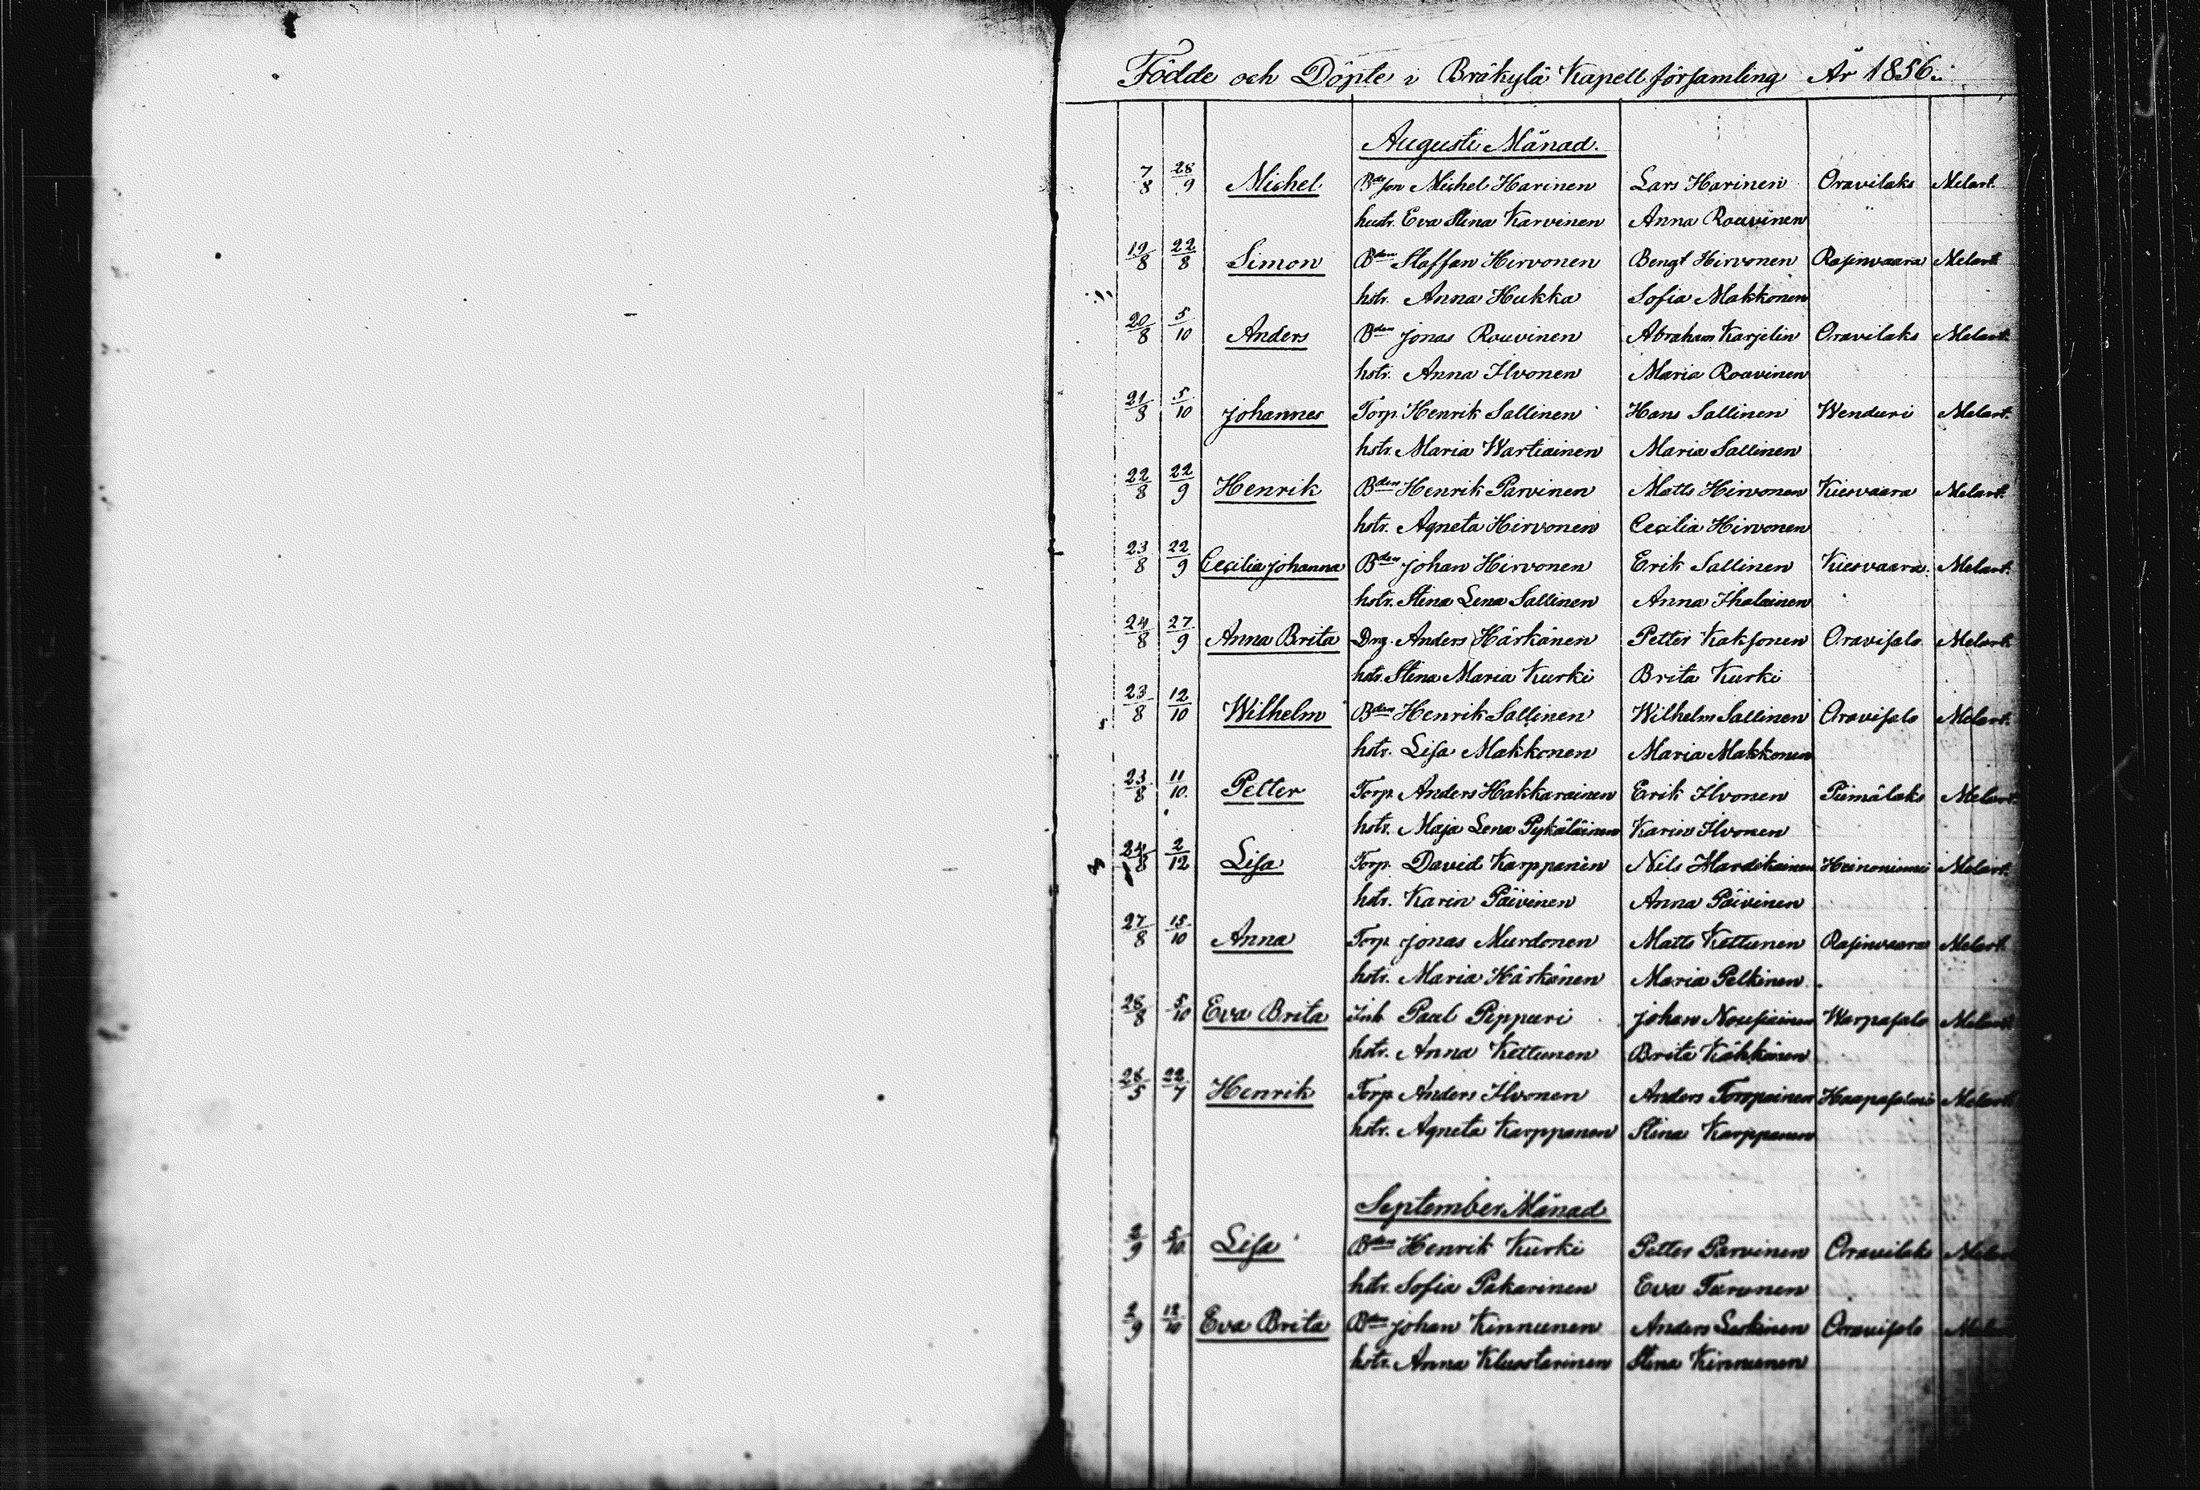 Födde och Döpte i Bräkylä Kapell församling År 1856.
Augusti Månad.
7/8 28/9 Michel Bdeson Michel Harinen Lars Harinen Oravilaks Melart.
hustr. Eva Stina Karvinen Anna Rouvinen
19/8 22/8 Simon Bden Staffan Hirvonen Bengt Hirvonen Rasinvaara Melart
hstr. Anna Hukka Sofia Makkonen
20/8 5/10 Anders Bden Jonas Rouvinen Abraham Karjelin Oravilaks Melart.
hstr. Anna Ilvonen Maria Rouvinen
21/8 5/10 Johannes Torp. Henrik Sallinen Hans Sallinen Wenduri Melart.
hstr. Maria Wartiainen Maria Sallinen
22/8 22/9 Henrik Bden Henrik Parvinen Matts Hirvonen Kiesvaara Melart.
hstr. Agneta Hirvonen Cecilia Hirvonen
23/8 22/9 Cecilia Johanna Bden Johan Hirvonen Erik Sallinen Kiesvaara. Melart.
hstr. Stina Lena Sallinen Anna Ihalainen
24/8 27/9 Anna Brita Drg. Anders Härkänen Petter Kaksonen Oravisalo Melart
hstr. Stina Maria Kurki Brita Kurki
23/8 12/10 Wilhelm Bden Henrik Sallinen Wilhelm Sallinen Oravisalo Melart.
hstr. Lisa Makkonen Maria Makkonen
23/8 11/10. Petter Torp. Anders Hakkarainen Erik Ilvonen Piimälaks Melart.
hstr. Maja Lena Pykäläinen Karin Ilvonen
24/8 2/12 Lisa Torp. David Karppanen Nils Heinoniemi Melart.
hstr. Karin Päivinen Anna Päivinen
27/8 15/10 Anna Torp. Jonas Murdonen Matts Kettunen Rasinvaara Melart.
hstr. Maria Härkänen Maria Pelkinen
28/8 5/10 Eva Brita Inh. Paul Pippuri Johan Nousiainen Warpasalo Melart.
hstr. Anna Kettunen Brita Kähkönen
28/5 22/7 Henrik Torp. Anders Ilvonen Anders Torppainen Haapasalmi Melart
hstr. Agneta Karppanen Stina Karppanen
September Månad
2/9 5/10. Lisa Bden Henrik Kurki Petter Parvinen Oravilaks Melart
hstr. Sofia Pakarinen Eva Turunen
2/9 12/10 Eva Brita Bden Johan Kinnunen Anders Leskinen Oravisalo Melart
hstr. Anna Kluostarinen Stina Kinnunen